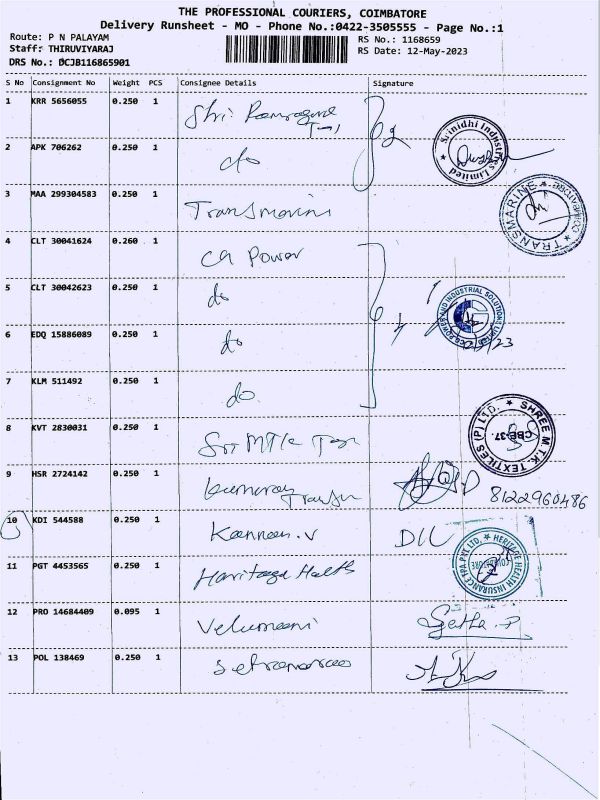 THE PROFESSIONAL COURIERS, COIMBATORE
Delivery Runsheet - MO - Phone No.:0422-3505555 - Page No.:1
Route: P N PALAYAM
RS No.: 1168659
Staff: THIRUVIYARAJ
RS Date: 12-May-2023
DRS No.: OCJB116865901
S No Consignment No Weight PCS Consignee Details Signature
1 KRR 5656055 0.250 1 Shri
2 APK 706262 0.250 1 do
Srinidhi Industries Limited
3 MAA 299304583 0.250 1 Transmarine
TRANSMARINE
4 CLT 30041624 0.260 1 CG Power
5 CLT 30042623 0.250 1 do
CG POWER AND INDUSTRIAL SOLUTIONS LIMITED
6 EDQ 15886089 0.250 1 do
7 KLM 511492 0.250 1 do
8 KVT 2830031 0.250 1 Sri MTK Tex
SHREE M.T.K. TEXTILES (P) LTD.
CBE-37.
9 HSR 2724142 0.250 1
8122960486
10 KDI 544588 0.250 1 Kannan.V
11 PGT 4453565 0.250 1 Heritage Health
HERITAGE HEALTH INSURANCE TPA PVT LTD.
COIMBATORE
12 PRO 14684409 0.095 1 Velumani Geetha.P
13 POL 138469 0.250 1